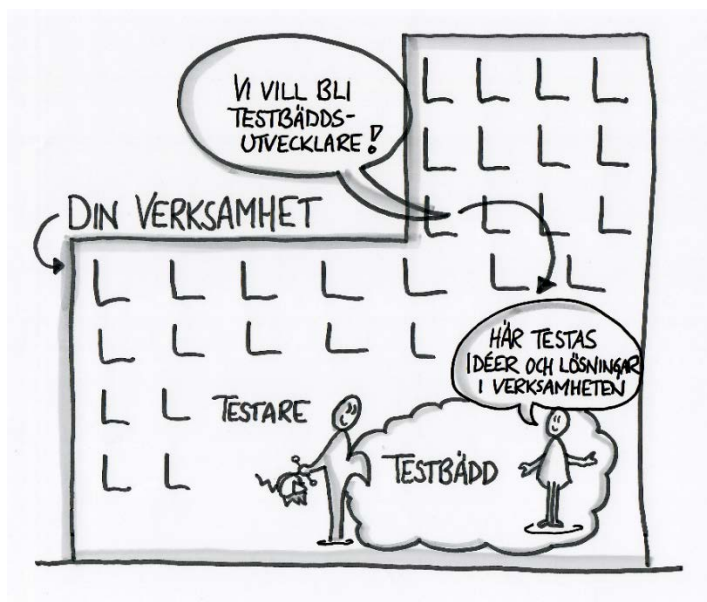 VI VILL BLI
TESTBÄDDS-
UTVECKLARE!
DIN VERKSAMHET
HÄR TESTAS
IDÉER OCH LÖSNINGAR
I VERKSAMHETEN
TESTARE
TESTBÄDD